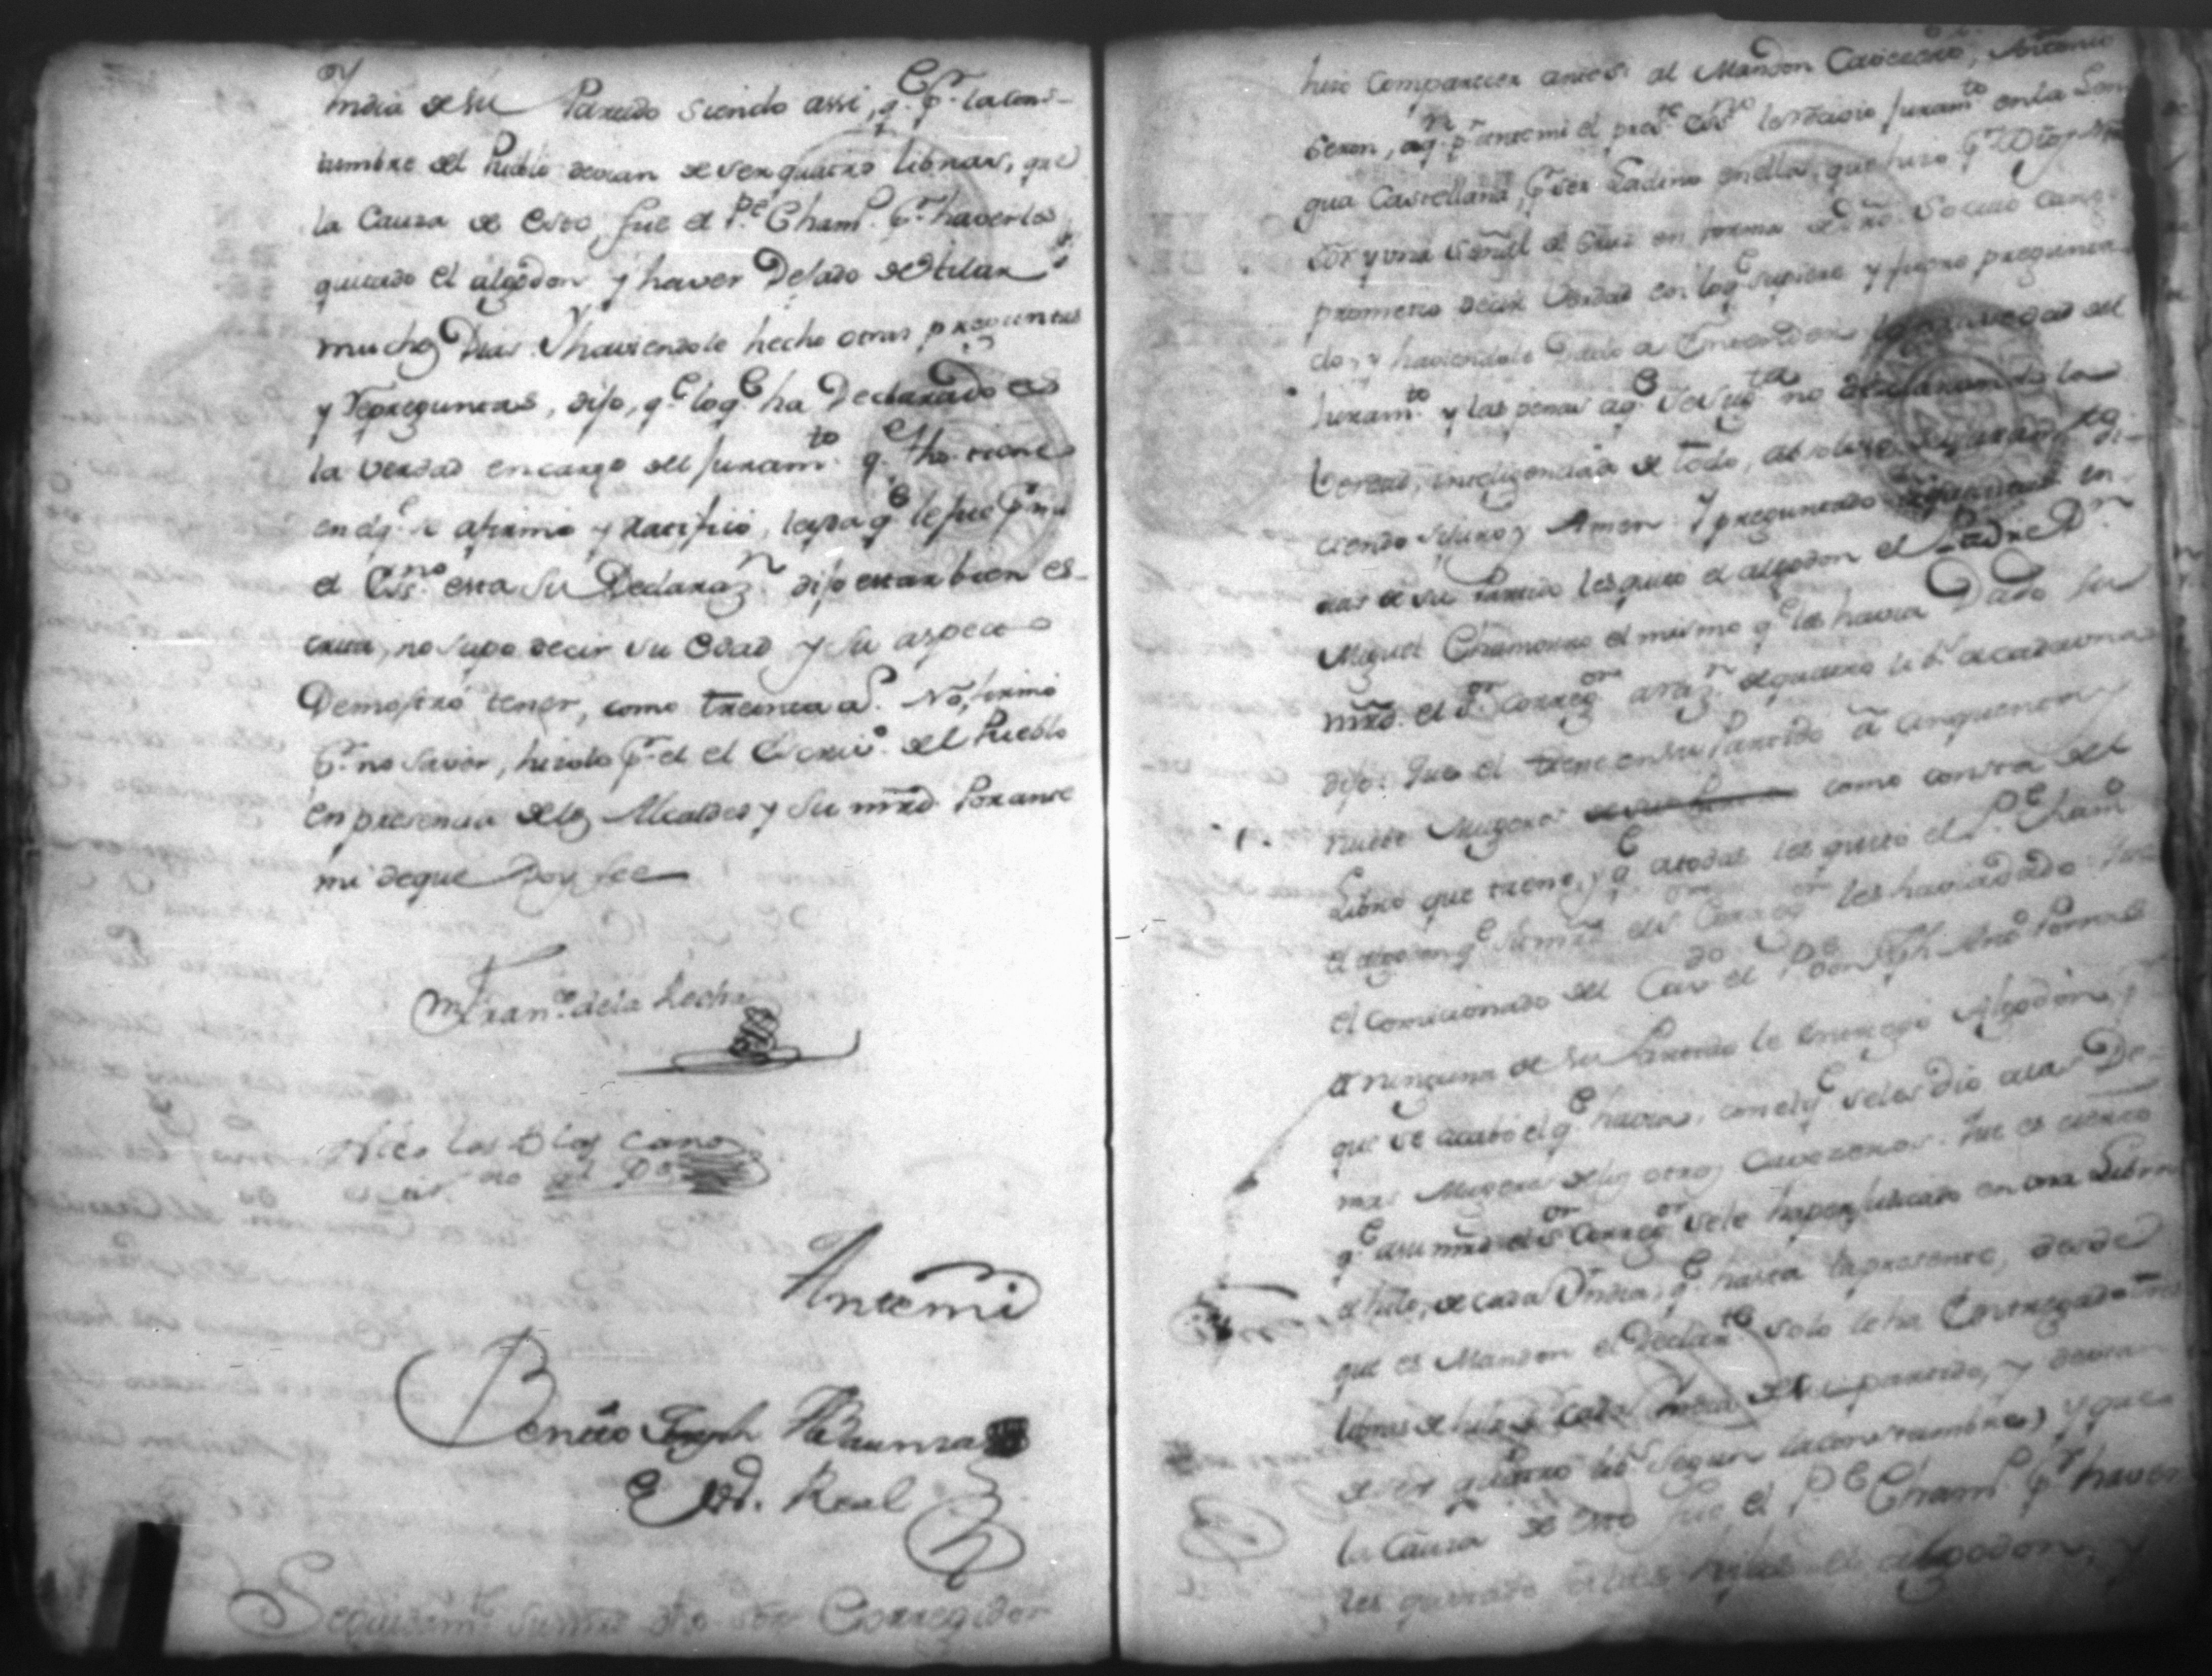 India de su Partido siendo assi, q.e p.r la cos-
tumbre del Pueblo devian de ser quatro libras, que
la Causa de esto, fue el P.e Cham.o p.r haverles
quitado el algodon y haver Dejado de hilar
muchos Dias. Y haviendole hecho otras preguntas
y repreguntas, dijo, q.e lo q.e ha Declarado es
la verdad encargo del Juram.to q.e fho tiene
en el q.e se afirmo y ratifico, leyda q.e le fue p.r mi
el Ess.no esta su Declaraz.n dijo estar bien es-
crita, no supo decir su edad y su aspecto
Demostró tener, como treinta a.s No, firmó
p.r no saver, hizolo p.r el el Escriv.o del Pueblo
en presencia de los Alcaldes y su mrd. Por ante
mi de que Doy fee
Fran.co de la Rocha
Nicolas Blas Cano
escriv.no
Antemi
Benito Joseph
Real
Seguidam.te su mrd dho Sor Corregidor
hizo Comparecer ante si al Mandon Antonio
Seron, a q.n p.r antemi el pres.te Ess.no le recivio Juram.to en la Len
gua Castellana, p.r ser Ladino en ella, que hizo p.r Dios Nro
Sor y una Señal de Cruz en forma de dro. So cuio cargo
prometio decir Verdad en lo q.e supiere y fuere pregunta
do, y haviendole Dado a Entender la gravedad del
Juram.to y las penas a q.e se sug.ta no declarando la
verdad, inteligenciado de todo, di-
ciendo si Juro, y Amen. Y preguntado
dias de su Partido les quitó el algodon el Padre D.n
Miguel Chamorro el mismo q.e les havia Dado su
mrd. el S.or Correg.or a raz.n de quatro lib.s a cada una
dijo: Que el tiene en su Partido a cinquenta y
nueve Mugeres como consta del
Libro que tiene, y q.e a todas les quitó el P.e Cham.o
el algodon q.e su mrd el S.or Correg.or les havia dado
el Comicionado del Cav.do el P.e Don Jph Ant.o
a ninguna de su Partido le entregó Algodon,
que se acabó el q.e havia, con el q.e se les dio a las De-
mas Mugeres de los otros Cavezeros. Que es cierto
q.e a su mrd el S.or Correg.or se le ha perjudicado en una Libra
de hilo, de cada India, q.e hasta la presente, desde
que es Mandon el Declar.te solo le ha Entregado tres
libras de hilo de cada India de su partido, y devian
de ser quatro lib.s segun la costumbre, y que
la Causa de esto fue el P.e Cham.o p.r haver
les quitado el algodon, y